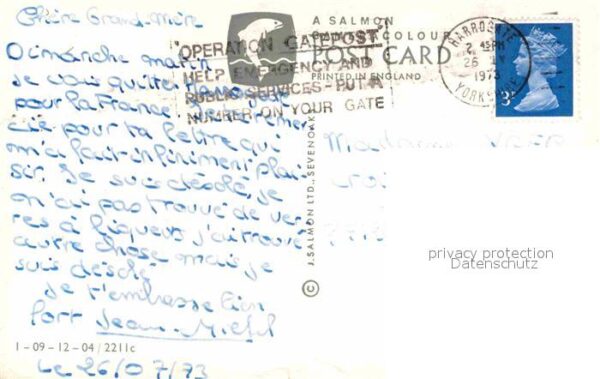 Chère Grand-Mère
Dimanche matin
je vais quitter
pour la France. Je te remer
cie pour ta lettre qui
m'a fait infiniment plai
sir. Je suis désolé, je
n'ai pas trouvé de ver
res à liqueur, j'ai trouvé
autre chose mais je
suis désolé
je t'embrasse bien
fort Jean-Michel
1-09-12-04/2211c
Le 26/07/73
A SALMON
COLOUR
POST CARD
PRINTED IN ENGLAND
"OPERATION GATEPOST"
HELP EMERGENCY AND
PUBLIC SERVICES-PUT A
NUMBER ON YOUR GATE
HARROGATE
2.45PM
26
1973
YORKSHIRE
3P
© J. SALMON LTD., SEVENOAKS
privacy protection
Datenschutz